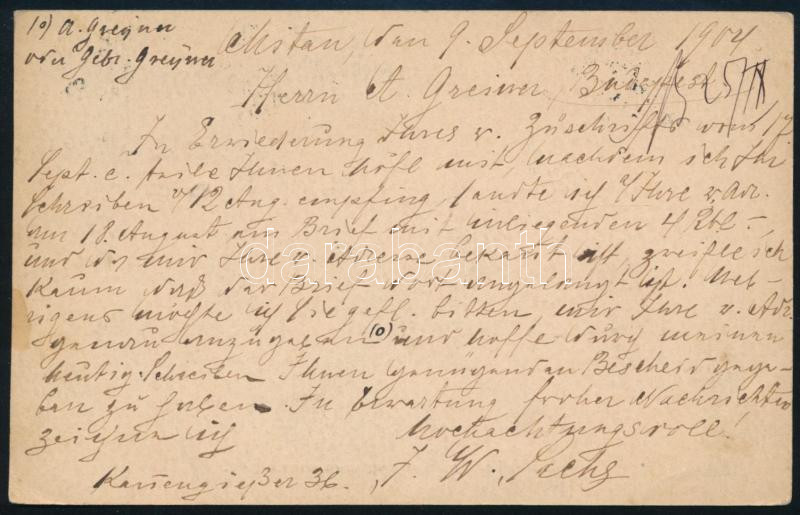 10) A. Greiner
oder Gebr. Greiner
Mitau, den 9. September 1904
Herrn A. Greiner, Budapest
In Erwiederung Ihres v. Zuschrift vom 17
Sept. c. teile Ihnen höfl mit, nachdem ich Ihr
Schreiben v/12 Aug. empfing, sandte ich Ihre v. Adr.
am 18. August ein Brief mit inliegenden 4 Rbl –,
und da mir Ihre v. Adresse bekannt ist, zweifle ich
kaum daß der Brief dort angelangt ist. Ueb-
rigens möchte ich Sie gefl. bitten, mir Ihre v. Adr.
genau anzugeben (10) und hoffe durch meinen
heutig. Schreiben Ihnen genügenden Bescheid gege-
ben zu haben. In Erwartung froher Nachrichten
zeichne ich
hochachtungsvoll
J. W. Sachs
Kannengießer 36.
darabanth